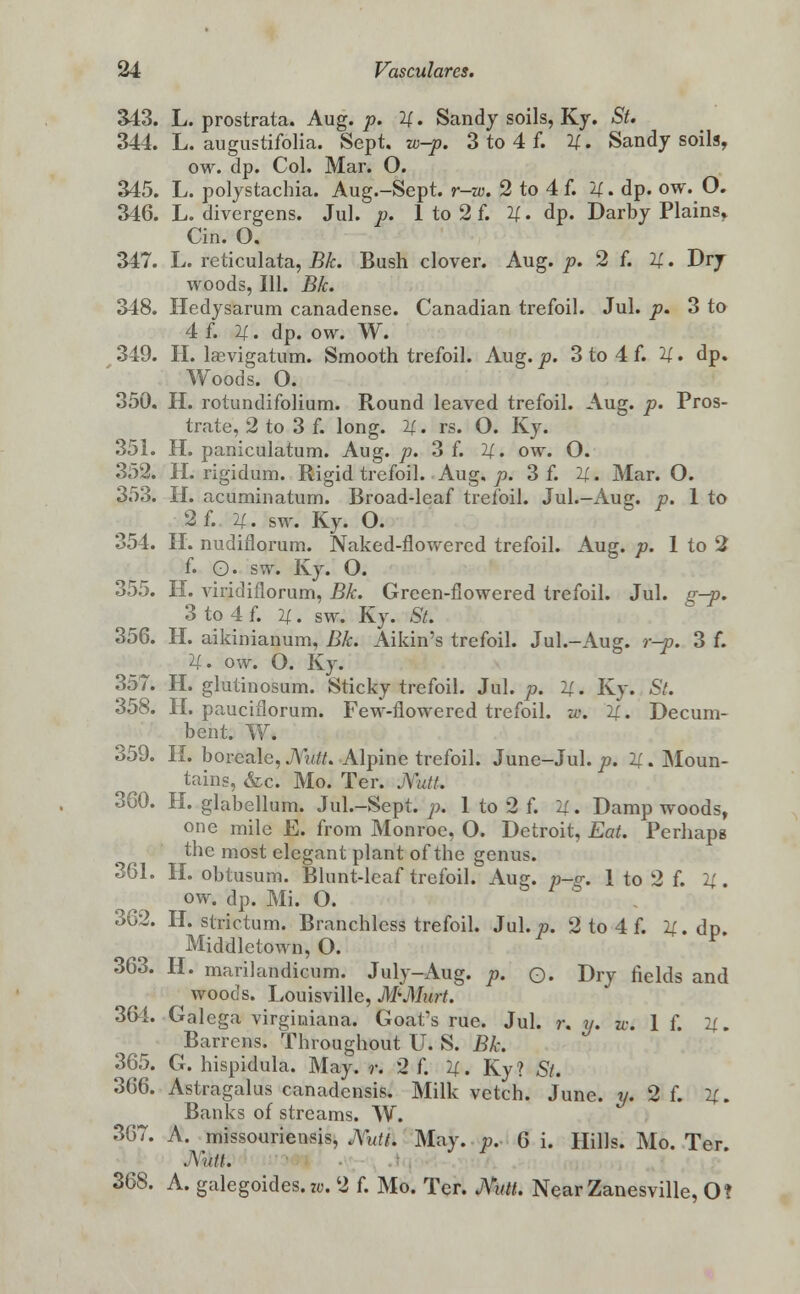 24 Vasculares.
343. L. prostrata. Aug. p. ♃. Sandy soils, Ky. St.
344. L. augustifolia. Sept. w-p. 3 to 4 f. ♃. Sandy soils,
ow. dp. Col. Mar. O.
345. L. polystachia. Aug.-Sept. r-w. 2 to 4 f. ♃. dp. ow. O.
346. L. divergens. Jul. p. 1 to 2 f. ♃. dp. Darby Plains,
Cin. O.
347. L. reticulata, Bk. Bush clover. Aug. p. 2 f. ♃. Dry
woods, Ill. Bk.
348. Hedysarum canadense. Canadian trefoil. Jul. p. 3 to
4 f. ♃. dp. ow. W.
349. H. lævigatum. Smooth trefoil. Aug. p. 3 to 4 f. ♃. dp.
Woods. O.
350. H. rotundifolium. Round leaved trefoil. Aug. p. Pros-
trate, 2 to 3 f. long. ♃. rs. O. Ky.
351. H. paniculatum. Aug. p. 3 f. ♃. ow. O.
352. H. rigidum. Rigid trefoil. Aug. p. 3 f. ♃. Mar. O.
353. H. acuminatum. Broad-leaf trefoil. Jul.-Aug. p. 1 to
2 f. ♃. sw. Ky. O.
354. H. nudiflorum. Naked-flowered trefoil. Aug. p. 1 to 2
f. ⊙. sw. Ky. O.
355. H. viridiflorum, Bk. Green-flowered trefoil. Jul. g-p.
3 to 4 f. ♃. sw. Ky. St.
356. H. aikinianum, Bk. Aikin's trefoil. Jul.-Aug. r-p. 3 f.
♃. ow. O. Ky.
357. H. glutinosum. Sticky trefoil. Jul. p. ♃. Ky. St.
358. H. pauciflorum. Few-flowered trefoil. w. ♃. Decum-
bent. W.
359. H. boreale, Nutt. Alpine trefoil. June-Jul. p. ♃. Moun-
tains, &c. Mo. Ter. Nutt.
360. H. glabellum. Jul.-Sept. p. 1 to 2 f. ♃. Damp woods,
one mile E. from Monroe, O. Detroit, Eat. Perhaps
the most elegant plant of the genus.
361. H. obtusum. Blunt-leaf trefoil. Aug. p-g. 1 to 2 f. ♃.
ow. dp. Mi. O.
362. H. strictum. Branchless trefoil. Jul. p. 2 to 4 f. ♃. dp.
Middletown, O.
363. H. marilandicum. July-Aug. p. ⊙. Dry fields and
woods. Louisville, M'Murt.
364. Galega virginiana. Goat's rue. Jul. r. y. w. 1 f. ♃.
Barrens. Throughout U. S. Bk.
365. G. hispidula. May. r. 2 f. ♃. Ky? St.
366. Astragalus canadensis. Milk vetch. June. y. 2 f. ♃.
Banks of streams. W.
367. A. missouriensis, Nutt. May. p. 6 i. Hills. Mo. Ter.
Nutt.
368. A. galegoides. w. 2 f. Mo. Ter. Nutt. Near Zanesville, O?